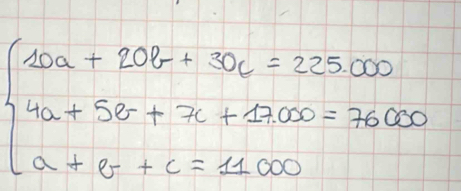 10a + 20b + 30c = 225.000
4a + 5b + 7c + 17.000 = 76000
a + b + c = 11000